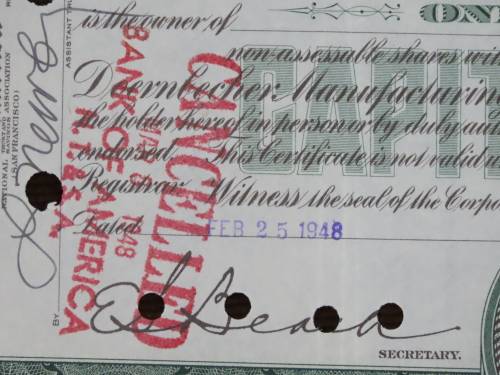 ONE
is the owner of
non-assessable shares
Doernbecher Manufacturing
the holder hereof in person or by
endorsed. This Certificate is not valid
Registrar. Witness the seal of the
Dated FEB 25 1948
CAPIT
SECRETARY.
BY
CANCELLED
1948
BANK OF AMERICA
N.T. & S.A.
ASSISTANT
NATIONAL TRUST AND SAVINGS ASSOCIATION
(SAN FRANCISCO)